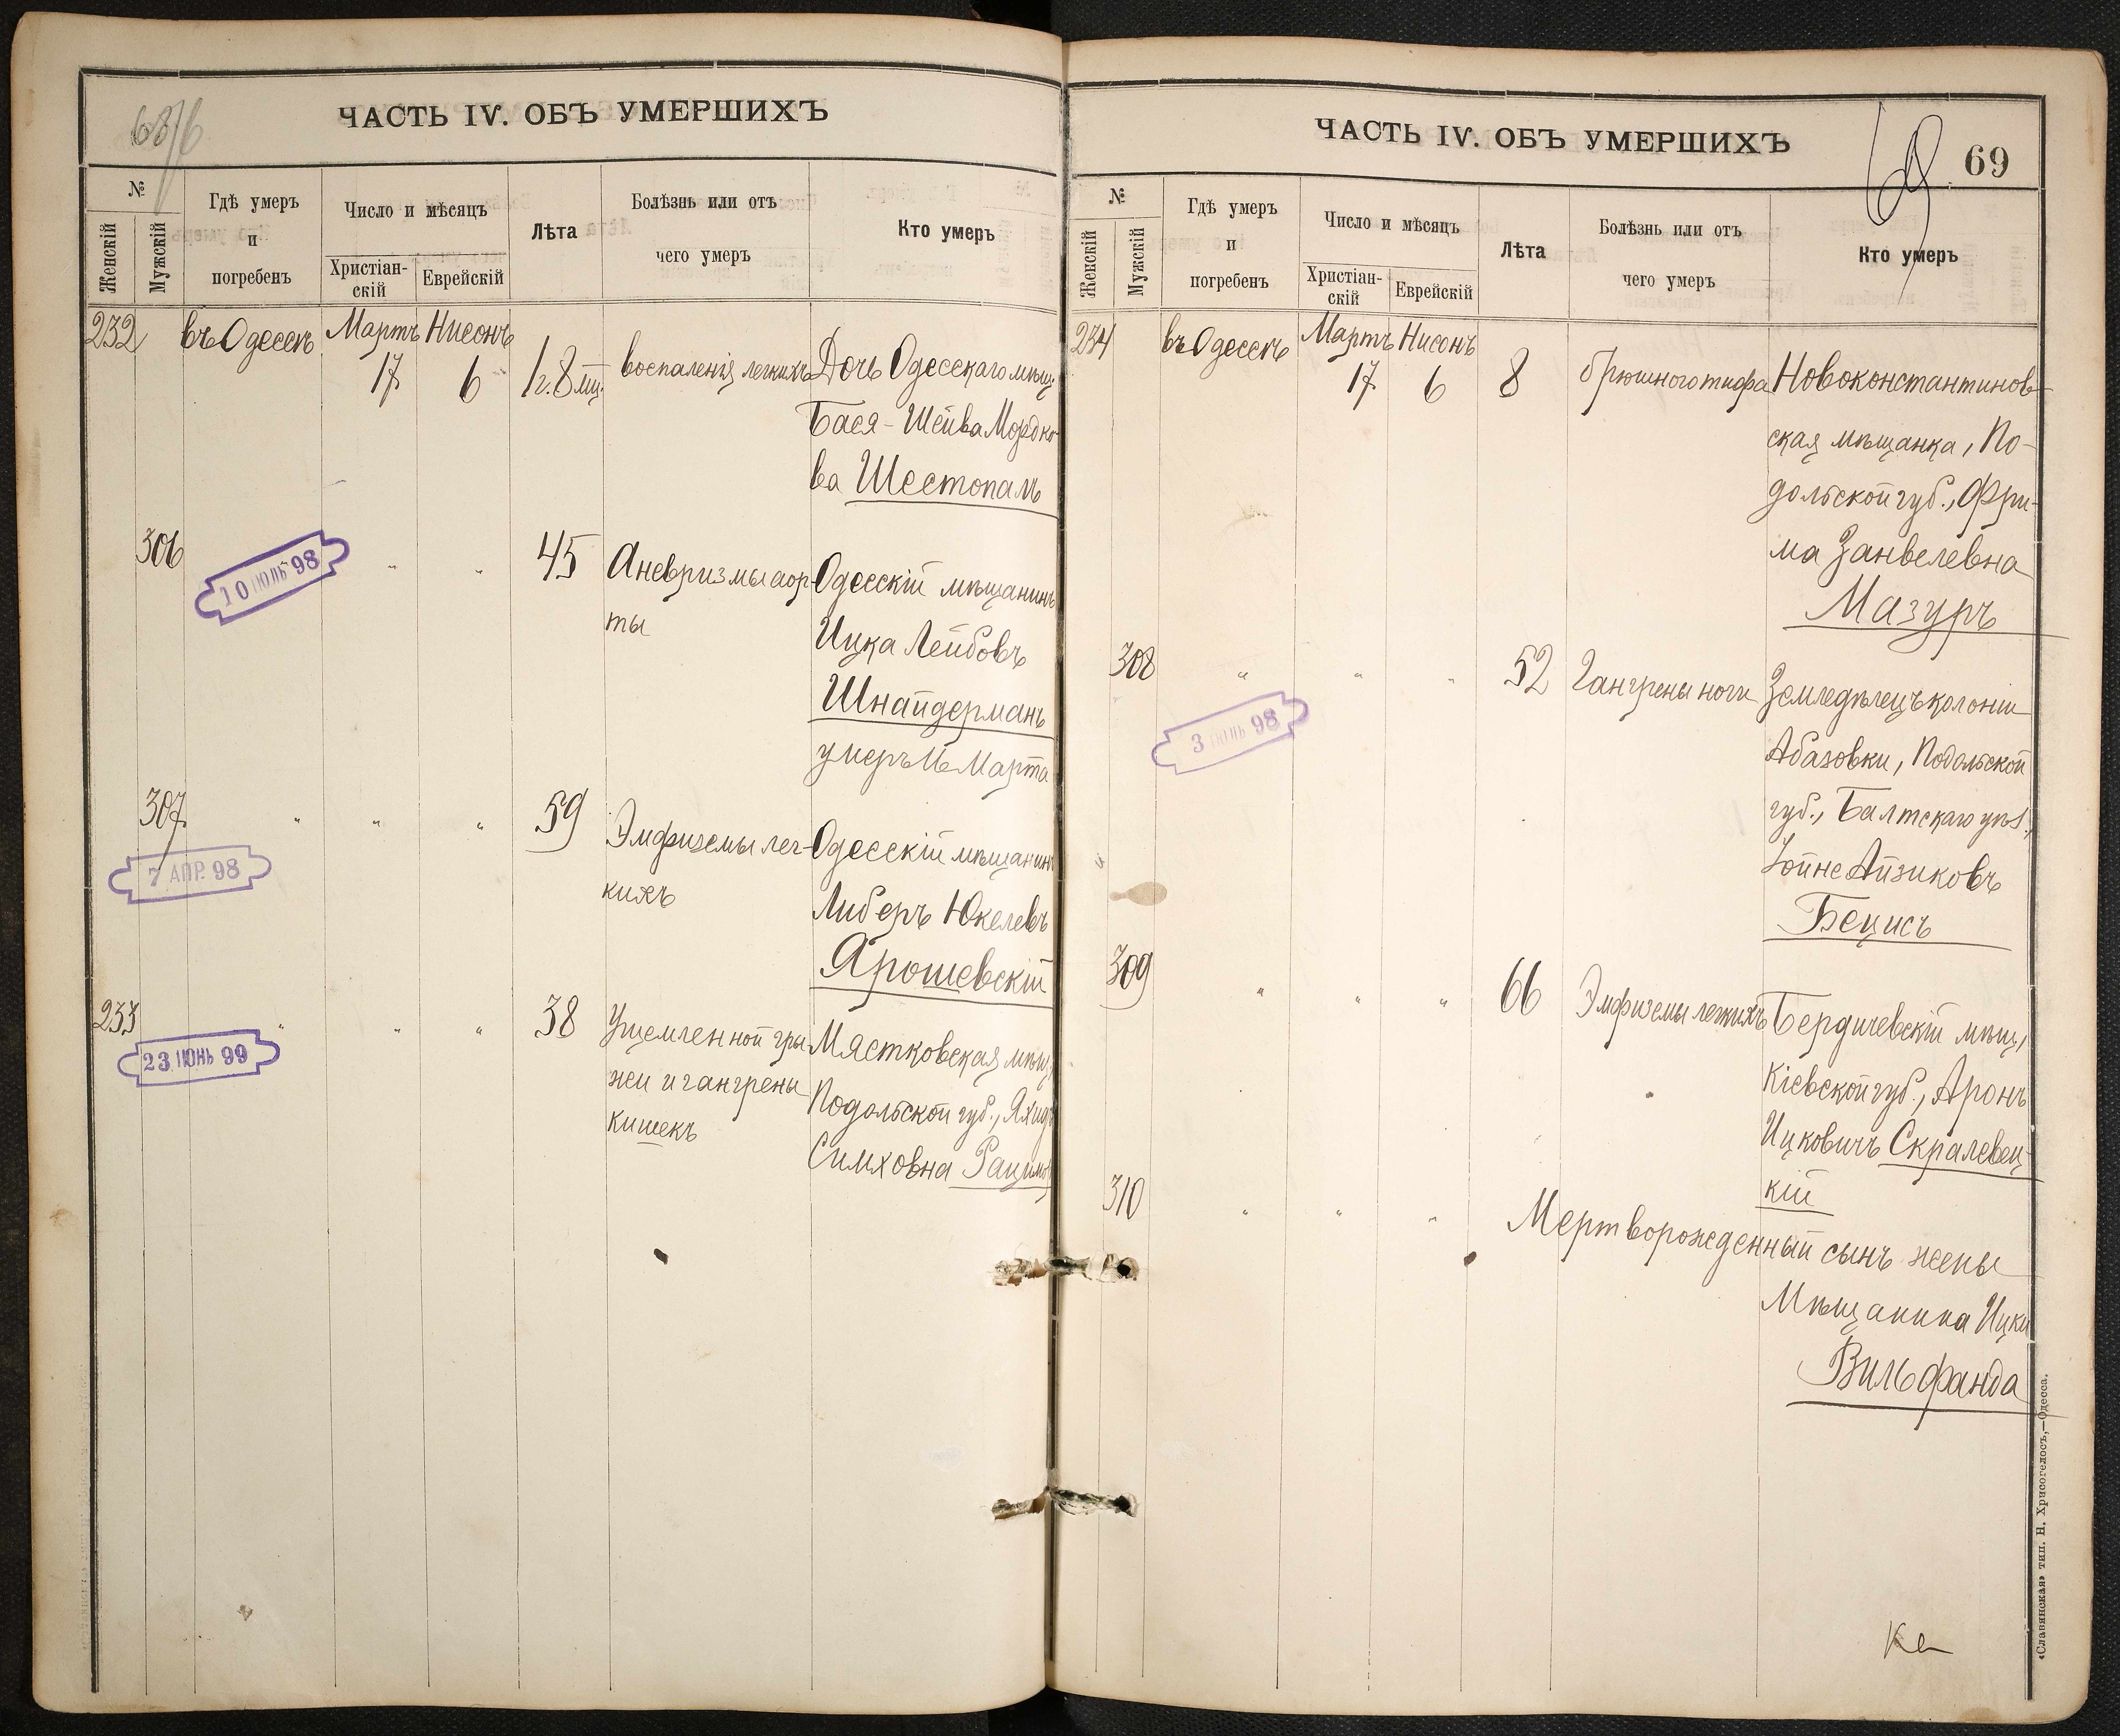 68/б
ЧАСТЬ IV. ОБЪ УМЕРШИХЪ
№
Женскій
Мужскій
Гдѣ умеръ
и
погребенъ
Число и мѣсяцъ
Христіан-
скій
Еврейскій
Лѣта
Болѣзнь или отъ
чего умеръ
Кто умеръ
232 въ Одессѣ Мартъ Нисонъ
17 6 1 г. 8 мц. воспаленія легкихъ Дочь Одесскаго мѣщ.
Бася-Шейва Мордко-
ва Шестопалъ
306 45 Аневризмы аор- Одесскій мѣщанинъ
ты Ицка Лейбовъ
10 ІЮЛЬ 98
Шнайдерманъ
умеръ 16 Марта
307 " " " 59 Эмфиземы лег- Одесскій мѣщанинъ
кихъ Либеръ Юкелевъ
7 АПР. 98
Ярошевскій
233 " " " 38 Ущемленной гры- Мястковская мѣщ.
23 ІЮНЬ 99
жи и гангрены Подольской губ.,
кишекъ Симховна
ЧАСТЬ IV. ОБЪ УМЕРШИХЪ
69
69
№
Женскій
Мужскій
Гдѣ умеръ
и
погребенъ
Число и мѣсяцъ
Христіан-
скій
Еврейскій
Лѣта
Болѣзнь или отъ
чего умеръ
Кто умеръ
234 въ Одессѣ Мартъ Нисонъ
17 6 8 брюшного тифа Новоконстантинов-
ская мѣщанка, По-
дольской губ., Фри-
ма Занвелевна
Мазуръ
308 " " " 52 Гангрены ноги Земледѣлецъ колоніи
3 ІЮНЬ 98
Абазовки, Подольской
губ., Балтскаго уѣз.,
Айзиковъ
Бецисъ
309 " " " 66 Эмфиземы легкихъ Бердичевскій мѣщ.,
Кіевской губ., Аронъ
Ицковичъ Скралевец-
кій
310 " " " Мертворожденный сынъ жены
Мѣщанина Ицки
Вильфанда
«Славянская» тип. Н. Хрисогелосъ,—Одесса.